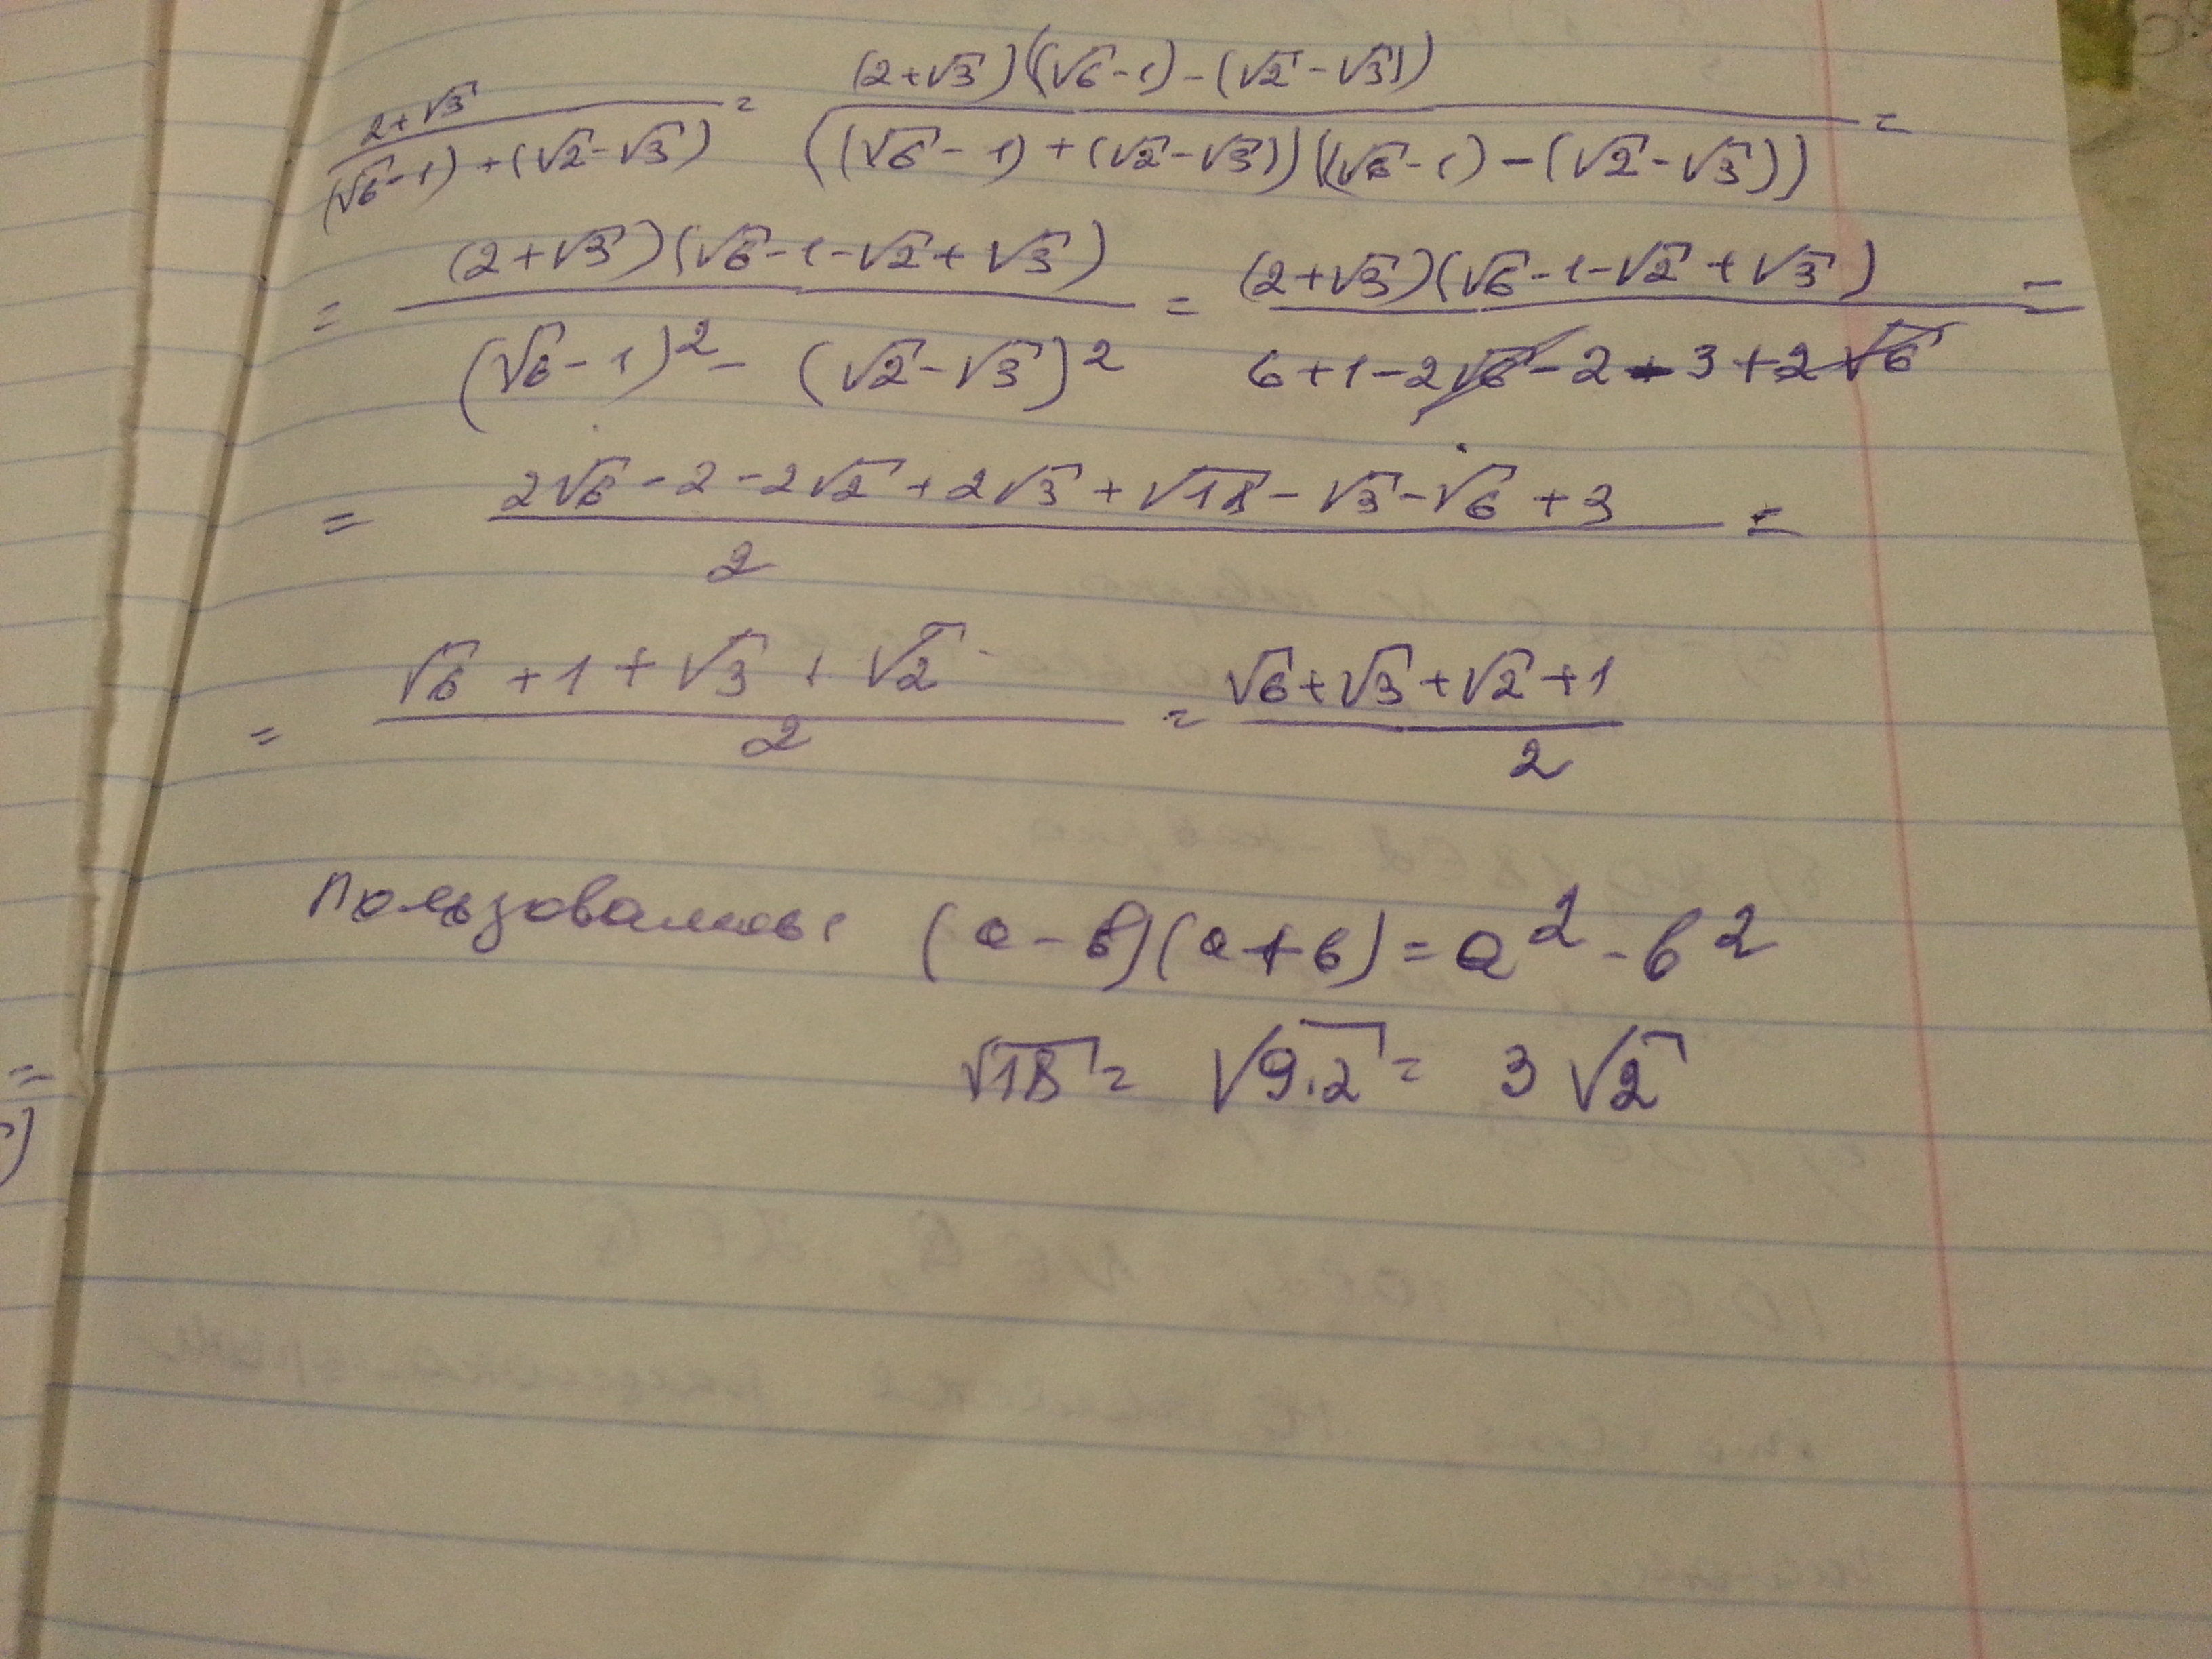 (2+√3)/((√6-1)+(√2-√3)) = (2+√3)((√6-1)-(√2-√3))/(((√6-1)+(√2-√3))((√6-1)-(√2-√3))) =
= (2+√3)(√6-1-√2+√3)/((√6-1)²-(√2-√3)²) = (2+√3)(√6-1-√2+√3)/(6+1-2√6-2-3+2√6) =
= (2√6-2-2√2+2√3+√18-√3-√6+3)/2 =
= (√6+1+√3+√2)/2 = (√6+√3+√2+1)/2
Пользовались: (а-в)(а+в)=а²-в²
√18 = √9.2 = 3√2
=
)